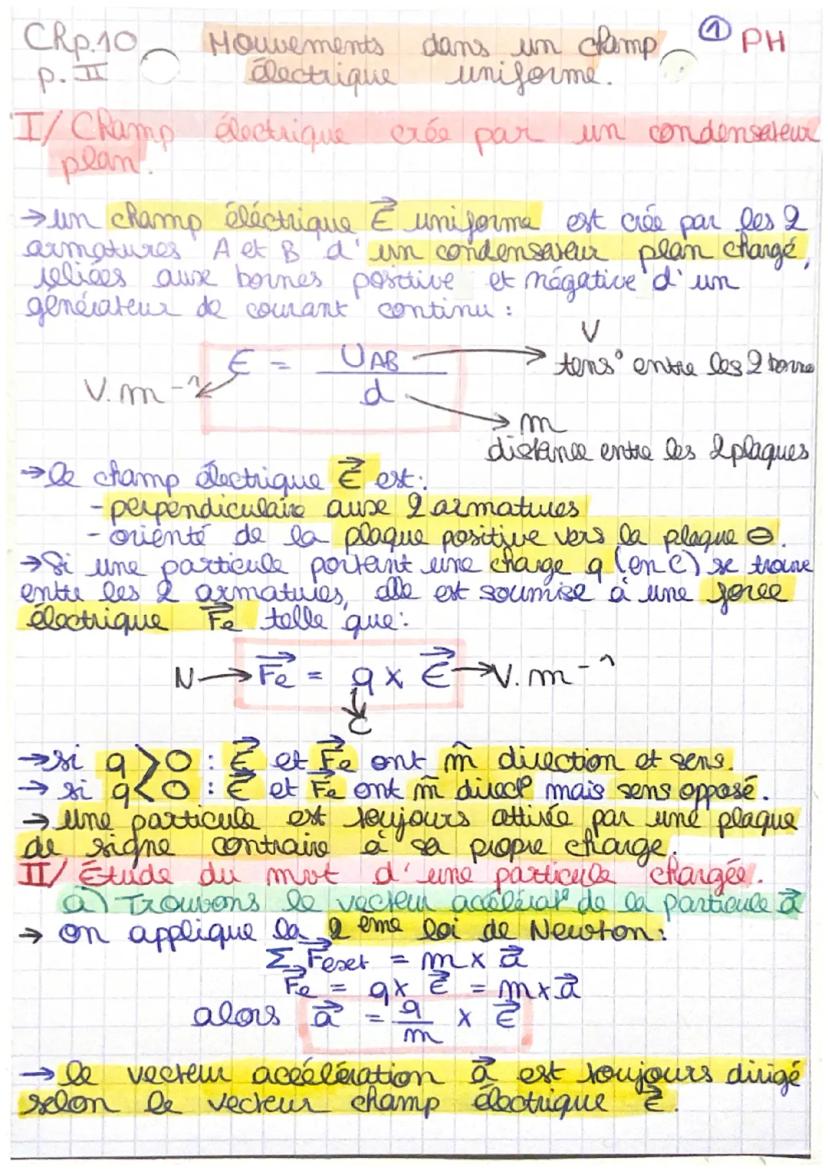 CRp.10 Mouvements dans un champ ① PH
p. II électrique uniforme.
I/ Champ électrique crée par un condensateur
plan.
→ un champ éléctrique E⃗ uniforme est crée par les 2
armatures A et B d'un condensateur plan chargé,
reliées aux bornes positive et négative d'un
générateur de courant continu :
V
E = UAB / d
tens° entre les 2 borne
V.m⁻¹
m
distance entre les 2 plaques
→ le champ électrique E⃗ est:
- perpendiculaire aux 2 armatures
- orienté de la plaque positive vers la plaque ⊖.
→ Si une particule portant une charge q (en C) se trouve
entre les 2 armatures, elle est soumise à une force
électrique F⃗e telle que:
N → F⃗e = q x E⃗ → V.m⁻¹
C
→ si q > 0 : E⃗ et F⃗e ont m̃ direction et sens.
→ si q < 0 : E⃗ et F⃗e ont m̃ direct° mais sens opposé.
→ une particule est toujours attirée par une plaque
de signe contraire à sa propre charge.
II/ Étude du mvt d'une particule chargée.
a) Trouvons le vecteur accélérat° de la particule a⃗
→ on applique la 2ème loi de Newton:
Σ F⃗ext = m x a⃗
F⃗e = q x E⃗ = m x a⃗
alors a⃗ = q/m x E⃗
→ le vecteur accélération a⃗ est toujours dirigé
selon le vecteur champ électrique E⃗.